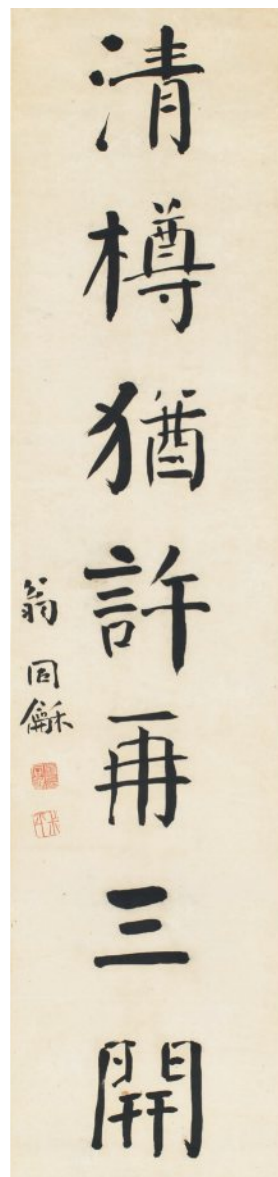 清樽猶許再三開
翁同龢